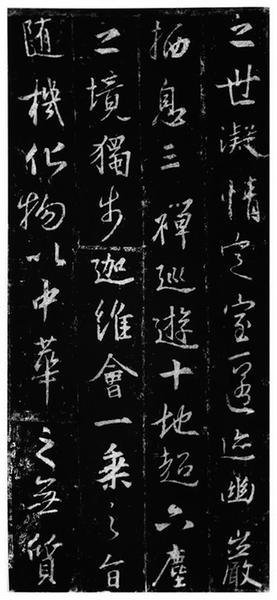 之世凝情定室匿迹幽巖
栖息三禪巡遊十地超六塵
之境獨步迦維會一乘之旨
隨機化物以中華之無質